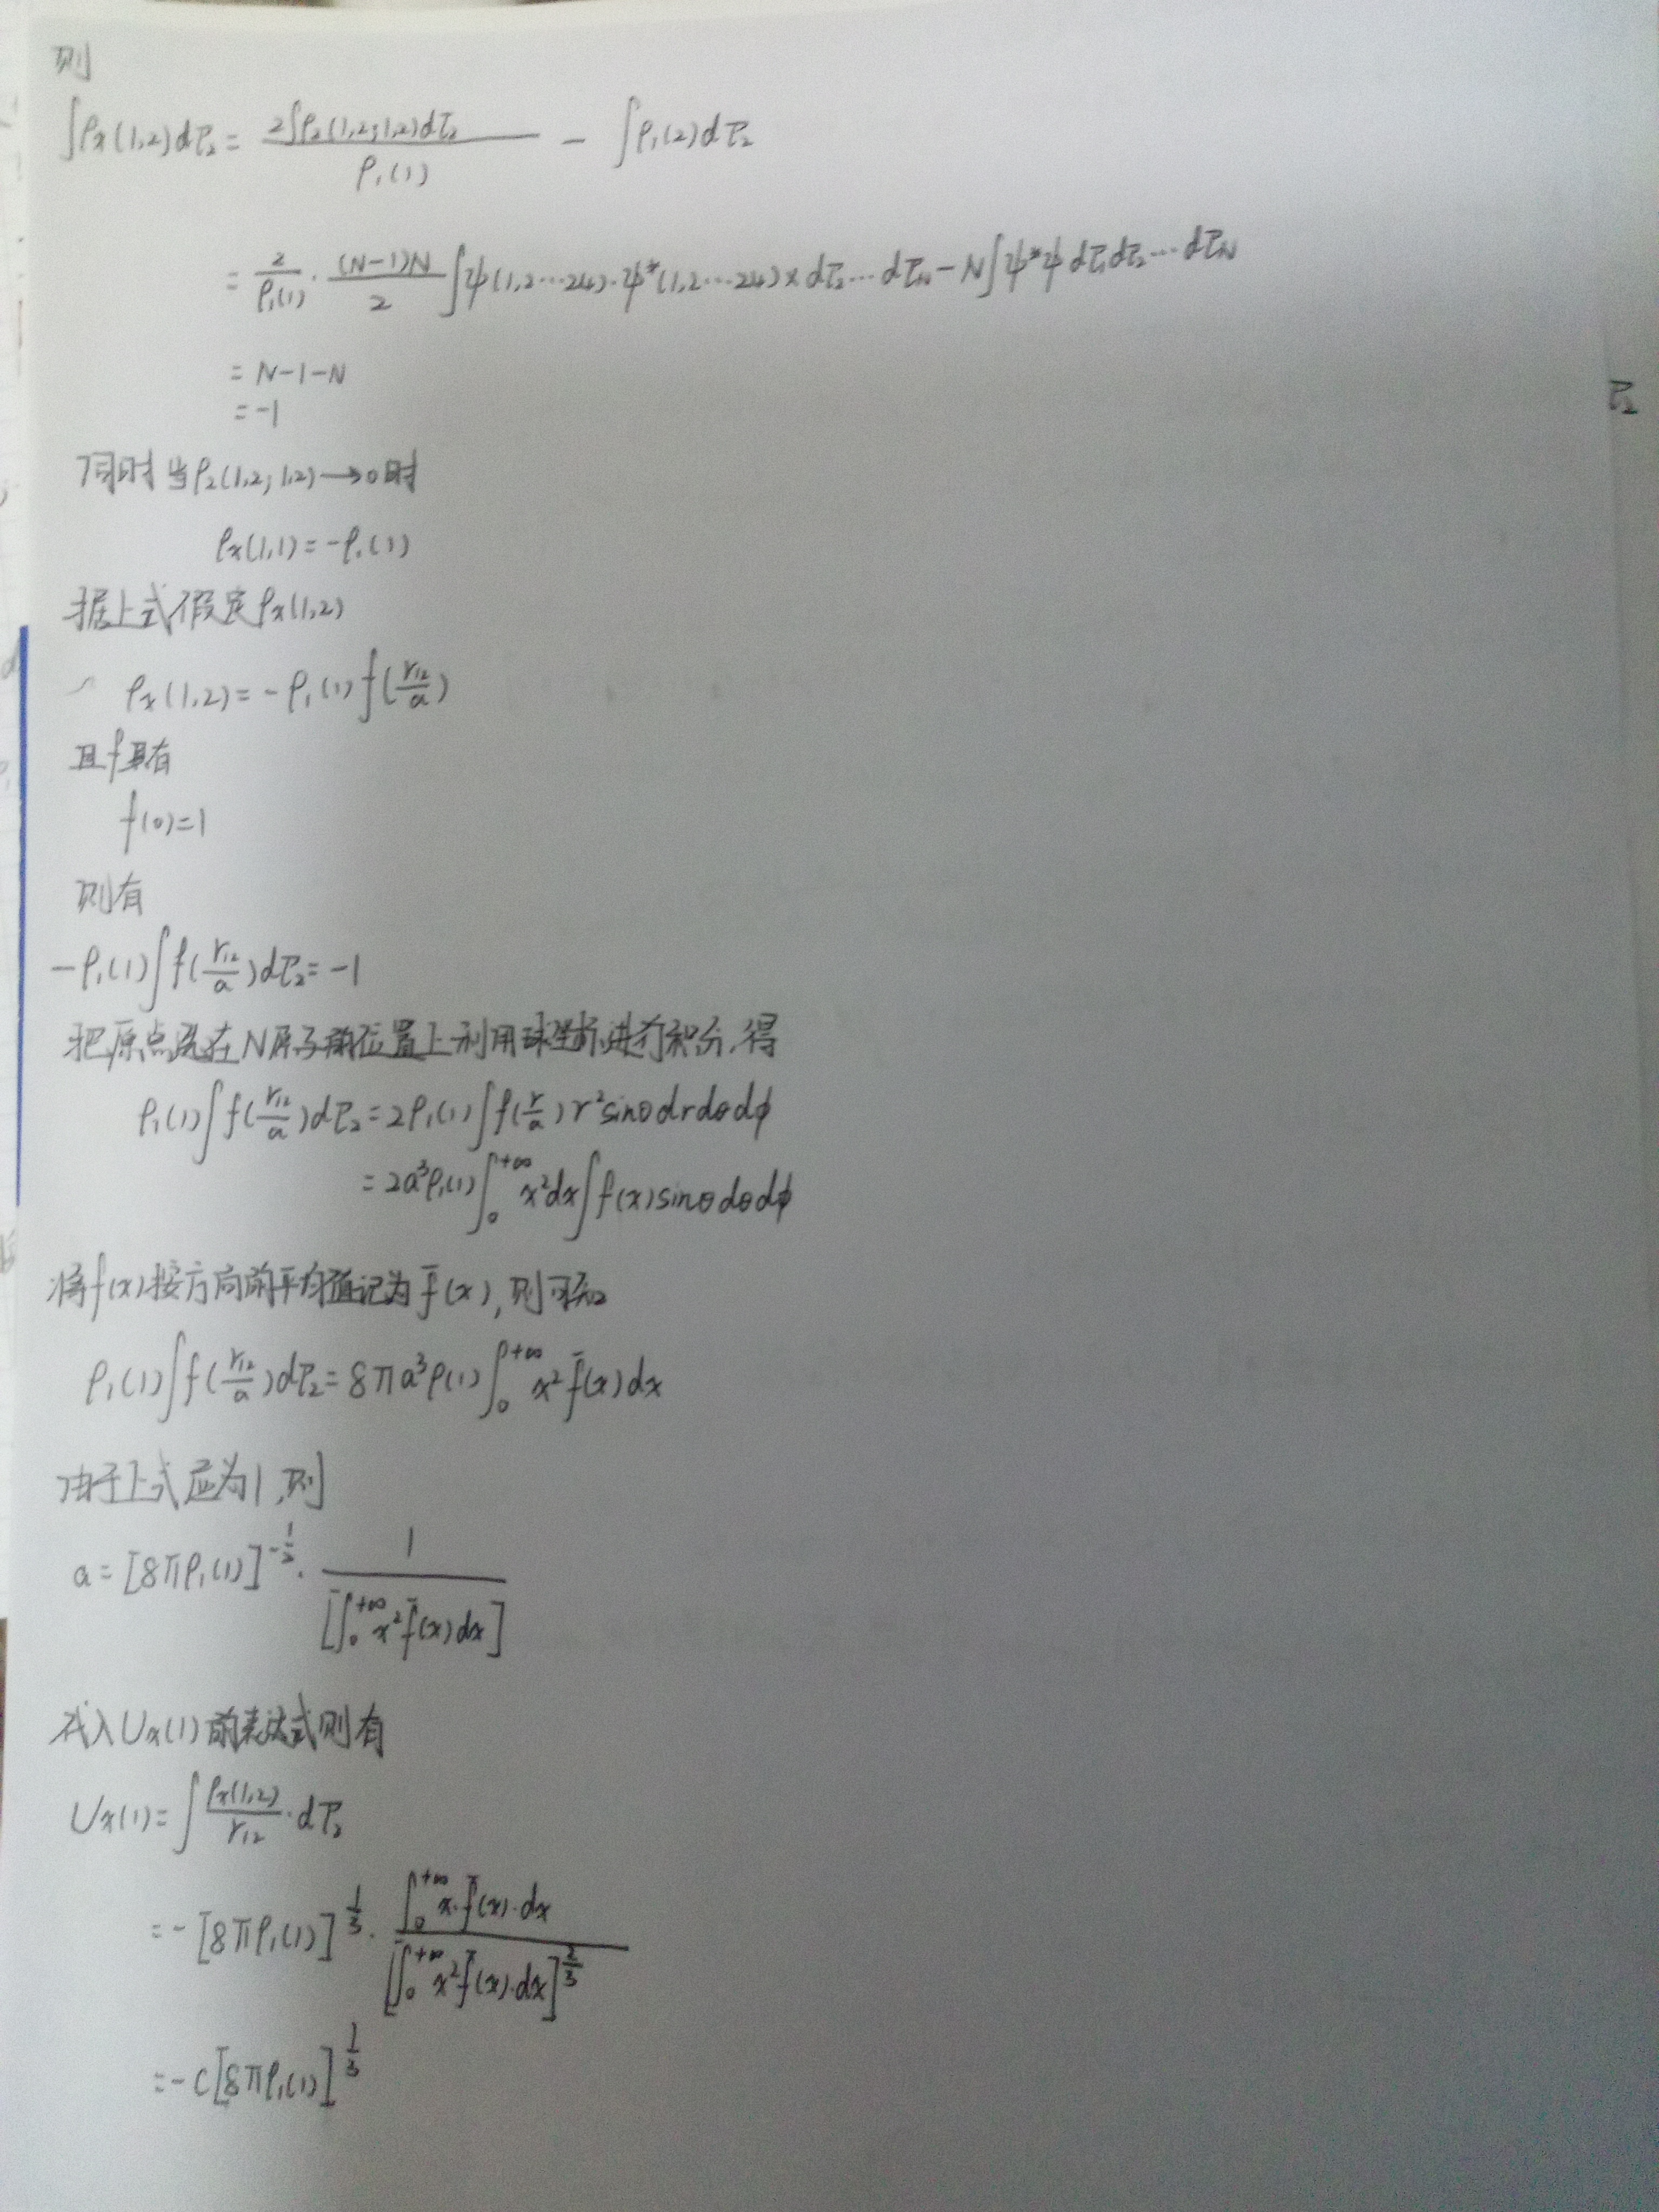 则
∫ρx(1,2)dτ₂ = 2∫ρ₂(1,2;1,2)dτ₂ / ρ₁(1) − ∫ρ₁(2)dτ₂
= 2/ρ₁(1) · (N−1)N/2 ∫ψ(1,2⋯24)·ψ*(1,2⋯24)×dτ₂⋯dτN − N∫ψ*ψdτ₁dτ₂⋯dτN
= N−1−N
τ₂
= −1
同时当ρ₂(1,2;1,2)→0时
ρx(1,1) = −ρ₁(1)
据上式假定ρx(1,2)
ρx(1,2) = −ρ₁(1)f(r₁₂/a)
且f具有
f(0)=1
则有
−ρ₁(1)∫f(r₁₂/a)dτ₂ = −1
把原点选在N原子的位置上利用球坐标进行积分,得
ρ₁(1)∫f(r₁₂/a)dτ₂ = 2ρ₁(1)∫f(r/a)r²sinθdrdθdϕ
= 2a³ρ₁(1)∫₀^{+∞}x²dx∫f(x)sinθdθdϕ
将f(x)按方向的平均值记为f̄(x),则可知
ρ₁(1)∫f(r₁₂/a)dτ₂ = 8πa³ρ(1)∫₀^{+∞}x²f̄(x)dx
由于上式应为1,则
a = [8πρ₁(1)]^{-1/2} · 1/[∫₀^{+∞}x²f̄(x)dx]
代入Ux(1)的表达式则有
Ux(1) = ∫ρx(1,2)/r₁₂ · dτ₂
= −[8πρ₁(1)]^{1/3} · ∫₀^{+∞}x·f̄(x)·dx / [∫₀^{+∞}x²f̄(x)·dx]^{2/3}
= −C[8πρ₁(1)]^{1/3}